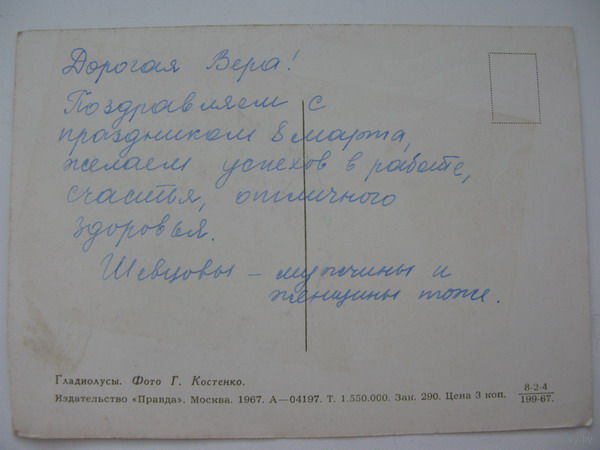 Дорогая Вера!
Поздравляем с
праздником 8 марта,
желаем успехов в работе,
счастья, отличного
здоровья.
Шевцовы – мужчины и
женщины тоже.
Гладиолусы. Фото Г. Костенко.
Издательство «Правда». Москва. 1967. А—04197. Т. 1.550.000. Зак. 290. Цена 3 коп.
8-2-4
199-67.